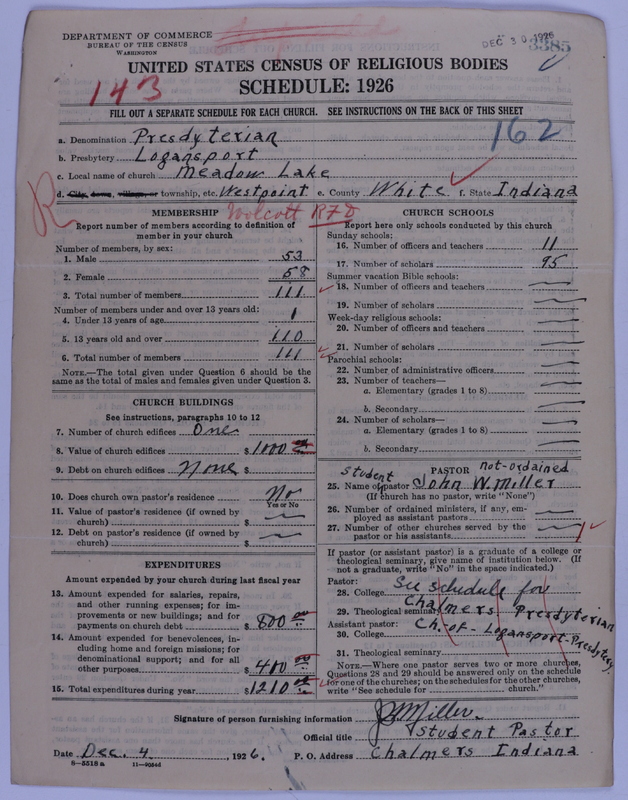 DEPARTMENT OF COMMERCE
BUREAU OF THE CENSUS
WASHINGTON
DEC 30 1926
3385
UNITED STATES CENSUS OF RELIGIOUS BODIES
SCHEDULE: 1926
143
FILL OUT A SEPARATE SCHEDULE FOR EACH CHURCH. SEE INSTRUCTIONS ON THE BACK OF THIS SHEET
162
a. Denomination Presdyterian
b. Presbytery Logansport
c. Local name of church Meadow Lake
d. City, town, village, or township, etc. Westpoint e. County White f. State Indiana
R
Wolcott RFD
MEMBERSHIP
Report number of members according to definition of
member in your church
Number of members, by sex:
1. Male 53
2. Female 58
3. Total number of members 111
Number of members under and over 13 years old:
4. Under 13 years of age 1
5. 13 years old and over 110
6. Total number of members 111
NOTE.—The total given under Question 6 should be the
same as the total of males and females given under Question 3.
CHURCH BUILDINGS
See instructions, paragraphs 10 to 12
7. Number of church edifices One
8. Value of church edifices $ 1000
9. Debt on church edifices None $
10. Does church own pastor's residence No
Yes or No
11. Value of pastor's residence (if owned by
church) $ —
12. Debt on pastor's residence (if owned by
church) $ —
EXPENDITURES
Amount expended by your church during last fiscal year
13. Amount expended for salaries, repairs,
and other running expenses; for im-
provements or new buildings; and for
payments on church debt $ 800 00
14. Amount expended for benevolences, in-
cluding home and foreign missions; for
denominational support; and for all
other purposes $ 400 00
15. Total expenditures during year $ 1210 00
CHURCH SCHOOLS
Report here only schools conducted by this church
Sunday schools:
16. Number of officers and teachers 11
17. Number of scholars 95
Summer vacation Bible schools:
18. Number of officers and teachers —
19. Number of scholars —
Week-day religious schools:
20. Number of officers and teachers —
21. Number of scholars —
Parochial schools:
22. Number of administrative officers —
23. Number of teachers—
a. Elementary (grades 1 to 8) —
b. Secondary —
24. Number of scholars—
a. Elementary (grades 1 to 8) —
b. Secondary —
Student PASTOR not-ordained
25. Name of pastor John W. Miller
(If church has no pastor, write "None")
26. Number of ordained ministers, if any, em-
ployed as assistant pastors —
27. Number of other churches served by the
pastor or his assistants — 1
If pastor (or assistant pastor) is a graduate of a college or
theological seminary, give name of institution below. (If
not a graduate, write "No" in the space indicated.)
Pastor:
28. College See schedule for
29. Theological seminary Chalmers Presdyterian
Assistant pastor:
30. College Ch. of - Logansport Presdytery.
31. Theological seminary
NOTE.—Where one pastor serves two or more churches,
Questions 28 and 29 should be answered only on the schedule
for one of the churches; on the schedules for the other churches,
write "See schedule for church."
Signature of person furnishing information JWMiller.
Official title Student Pastor
Date Dec. 4, 1926. P. O. Address Chalmers Indiana
8—5518a